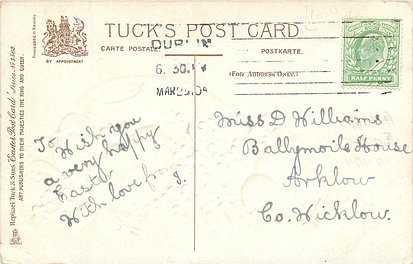 TUCK'S POST CARD
CARTE POSTALE
POSTKARTE.
(For Address Only.)
BY APPOINTMENT
HALF PENNY
DUBLIN
6. 30. PM
MAR
To
Wish you
a very happy
Easter
With love from
J.
Miss D Williams
Ballymoils House
Arklow
Co. Wicklow.
Raphael Tuck & Sons' Easter Post Card
ART PUBLISHERS TO THEIR MAJESTIES THE KING AND QUEEN.